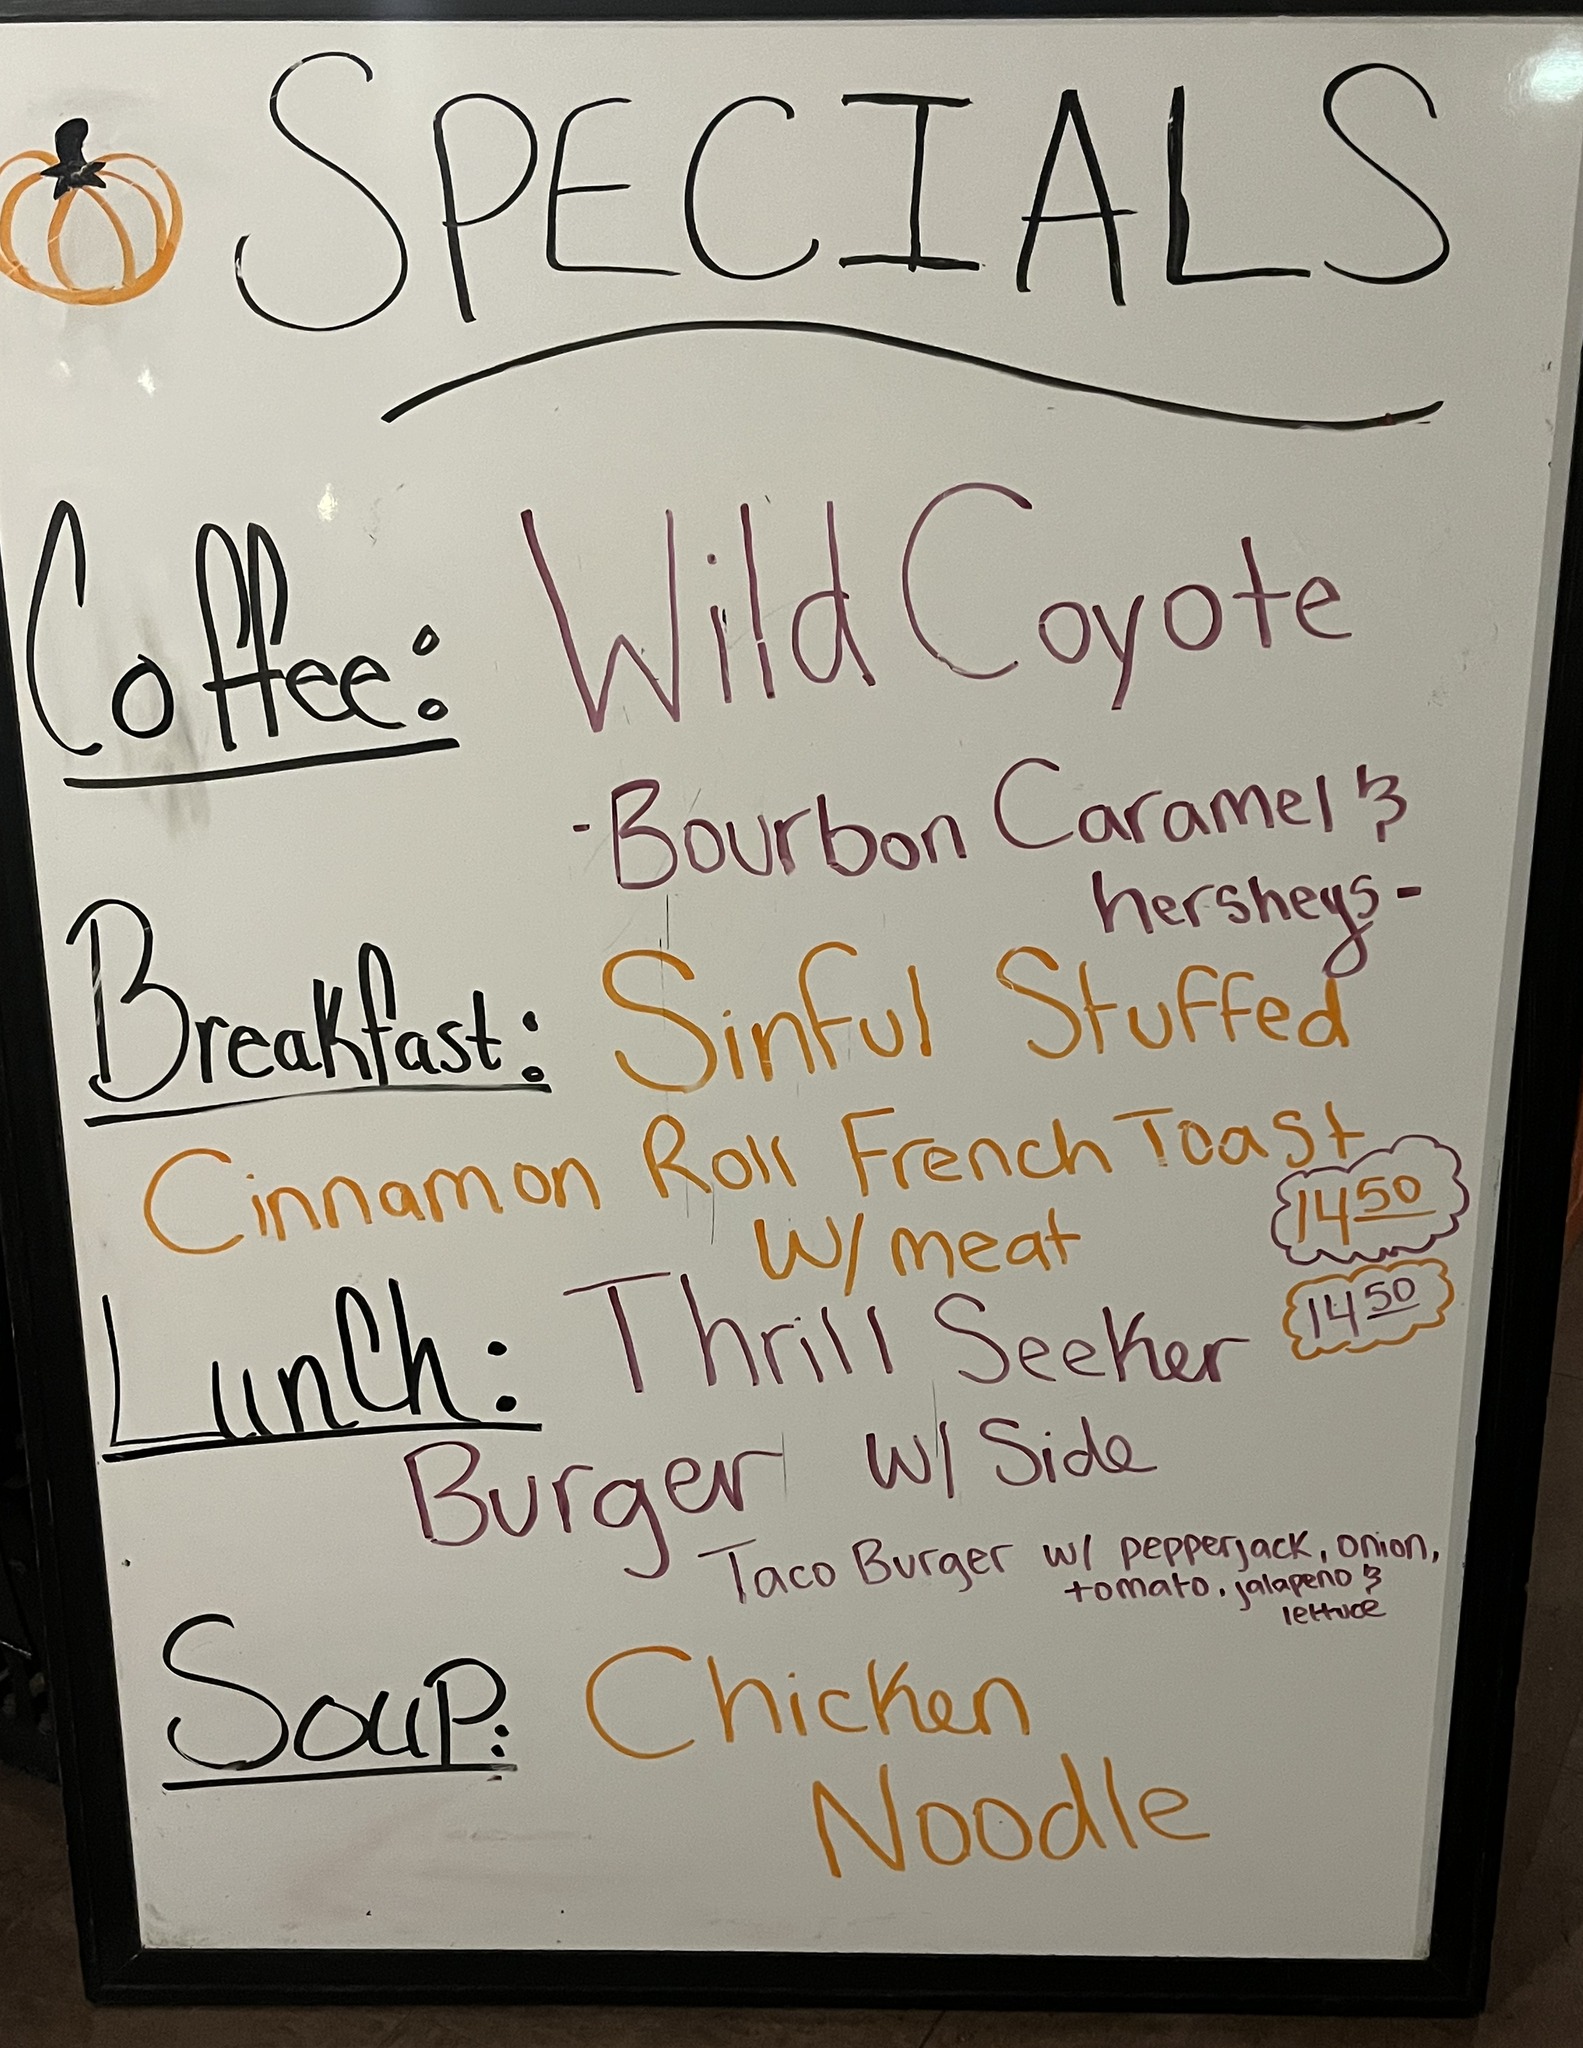 SPECIALS
Coffee: Wild Coyote
-Bourbon Caramel &
hersheys-
Breakfast: Sinful Stuffed
Cinnamon Roll French Toast
w/ meat 14 50
Lunch: Thrill Seeker 14 50
Burger w/ Side
Taco Burger w/ pepperjack, onion,
tomato, jalapeno &
lettuce
Soup: Chicken
Noodle